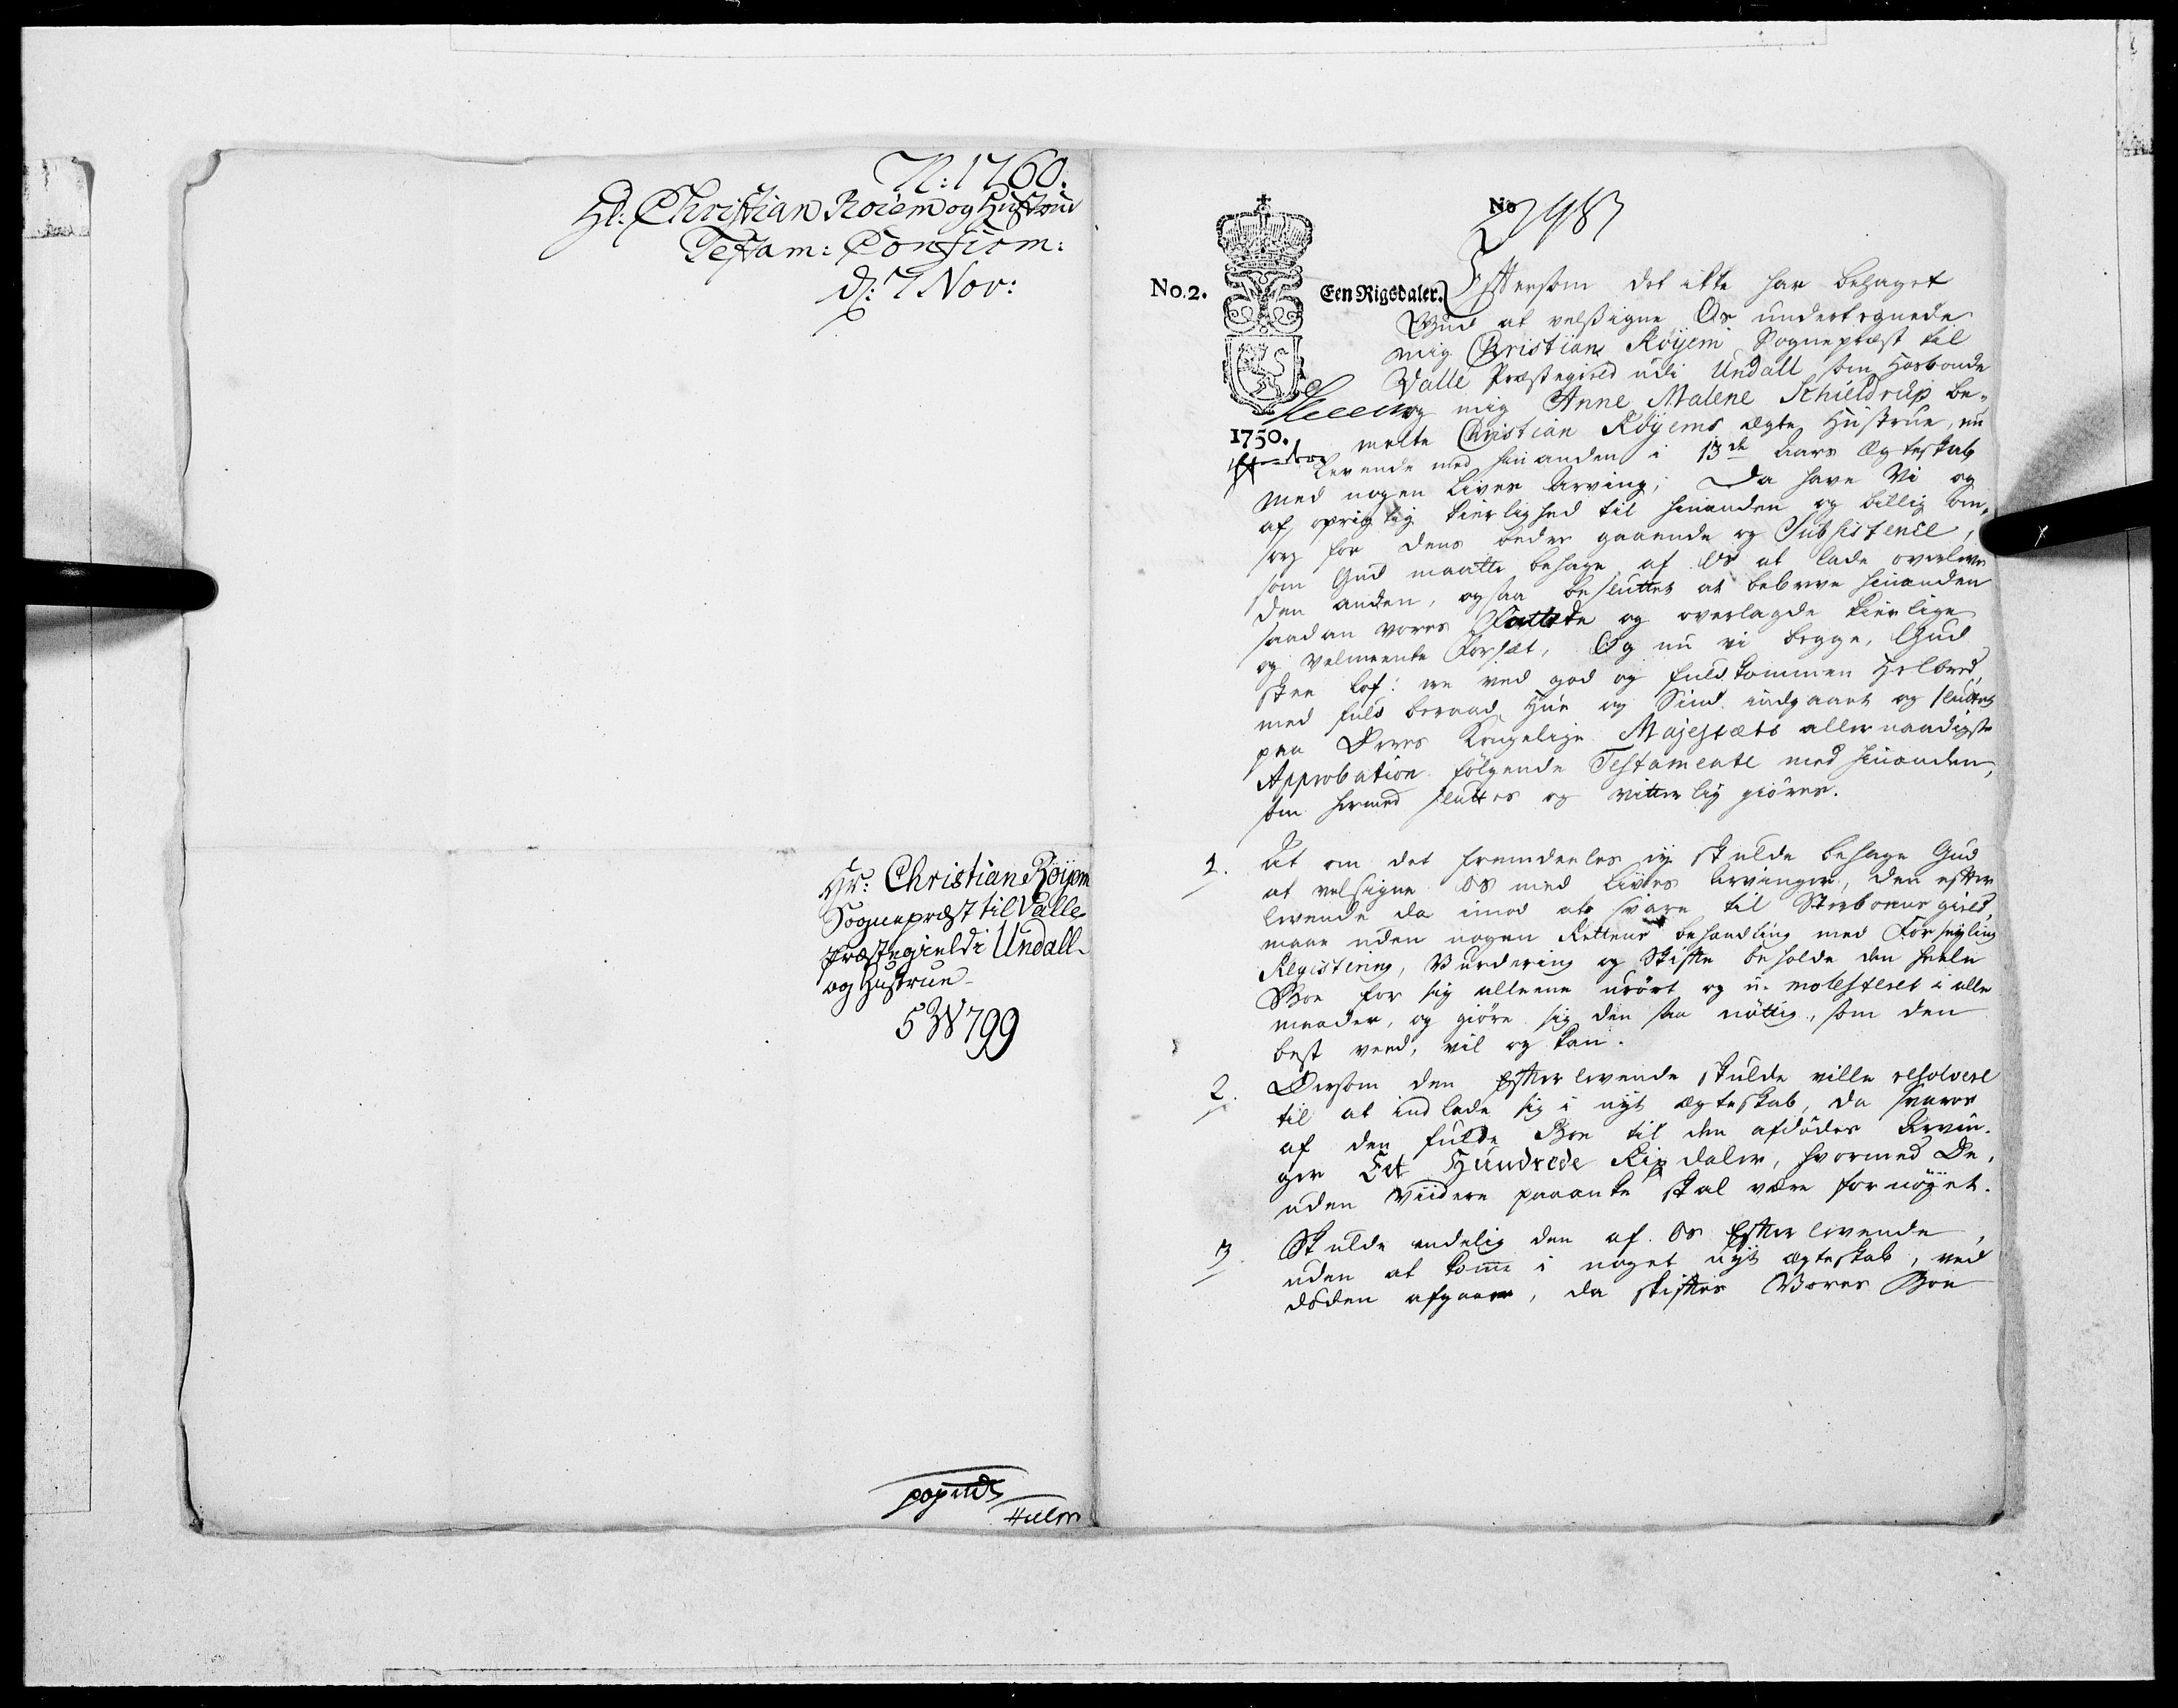 N: 1760.
Hr: Christian Roiem og Hustrue
Testam: Confirm:
d: 7 Nov:
Hr: Christian Röyem
Sognepræst til Valle
Præstegield i Undall
og Hustrue
5 W 799
No
2987
No. 2.
Een Rigsdaler.
1750.
Eftersom det ikke har behaget
Gud at velsigne Os undertegnede
mig Christian Röyem Sognepræst til
Valle Præstegield udi Undall som Hosbonde
og mig Anne Malene Schieldrup be-
melte Christian Röyems ægte Hustrue, nu
levende med hinanden i 13de Aars Ægteskab
med nogen Livs Arving; Da have Vi og
af oprigtig kierlighed til hinanden og billig om-
sorg for dens bedre gaaende og Subsistence,
som Gud maatte behage af Os at lade overleve
den anden, ogsaa besluttet at bebreve hinanden
saadan vores fattede og overlagde kierlige
og velmeente Forsæt, Og nu vi begge, Gud
skee lof: ere ved god og fuldkommen Helbred,
med fuld beraad Hue og Sind indgaaet og sluttet
paa Deres Kongelige Majestæts allernaadigste
Approbation følgende Testamente med hinanden,
som hermed sluttes og vitterlig giöres.
1. At om det fremdeeles ey skulde behage Gud
at velsigne os med Livs Arvinger, den efter
levende da imod at svare til Sterboens gield,
maae uden nogen Rettens behandling med Forseyling
Registering, Vurdering og Skifte beholde den heele
Boe for sig alleene urört og u-molesteret i alle
maader, og giöre sig den saa nöttig, som den
best veed, vil og kan.
2. Dersom den Efterlevende skulde ville resolvere
til at indlade sig i nyt ægteskab, da svares
af den fulde Boe til den afdödes Arvin-
ger Eet Hundrede Rixdaler, hvormed De,
uden Viidere paaanke skal være fornöyet.
3. Skulde endelig den af Os Efterlevende,
uden at komme i noget nyt ægteskab, ved
döden afgaae, da skiftes Vores Boe